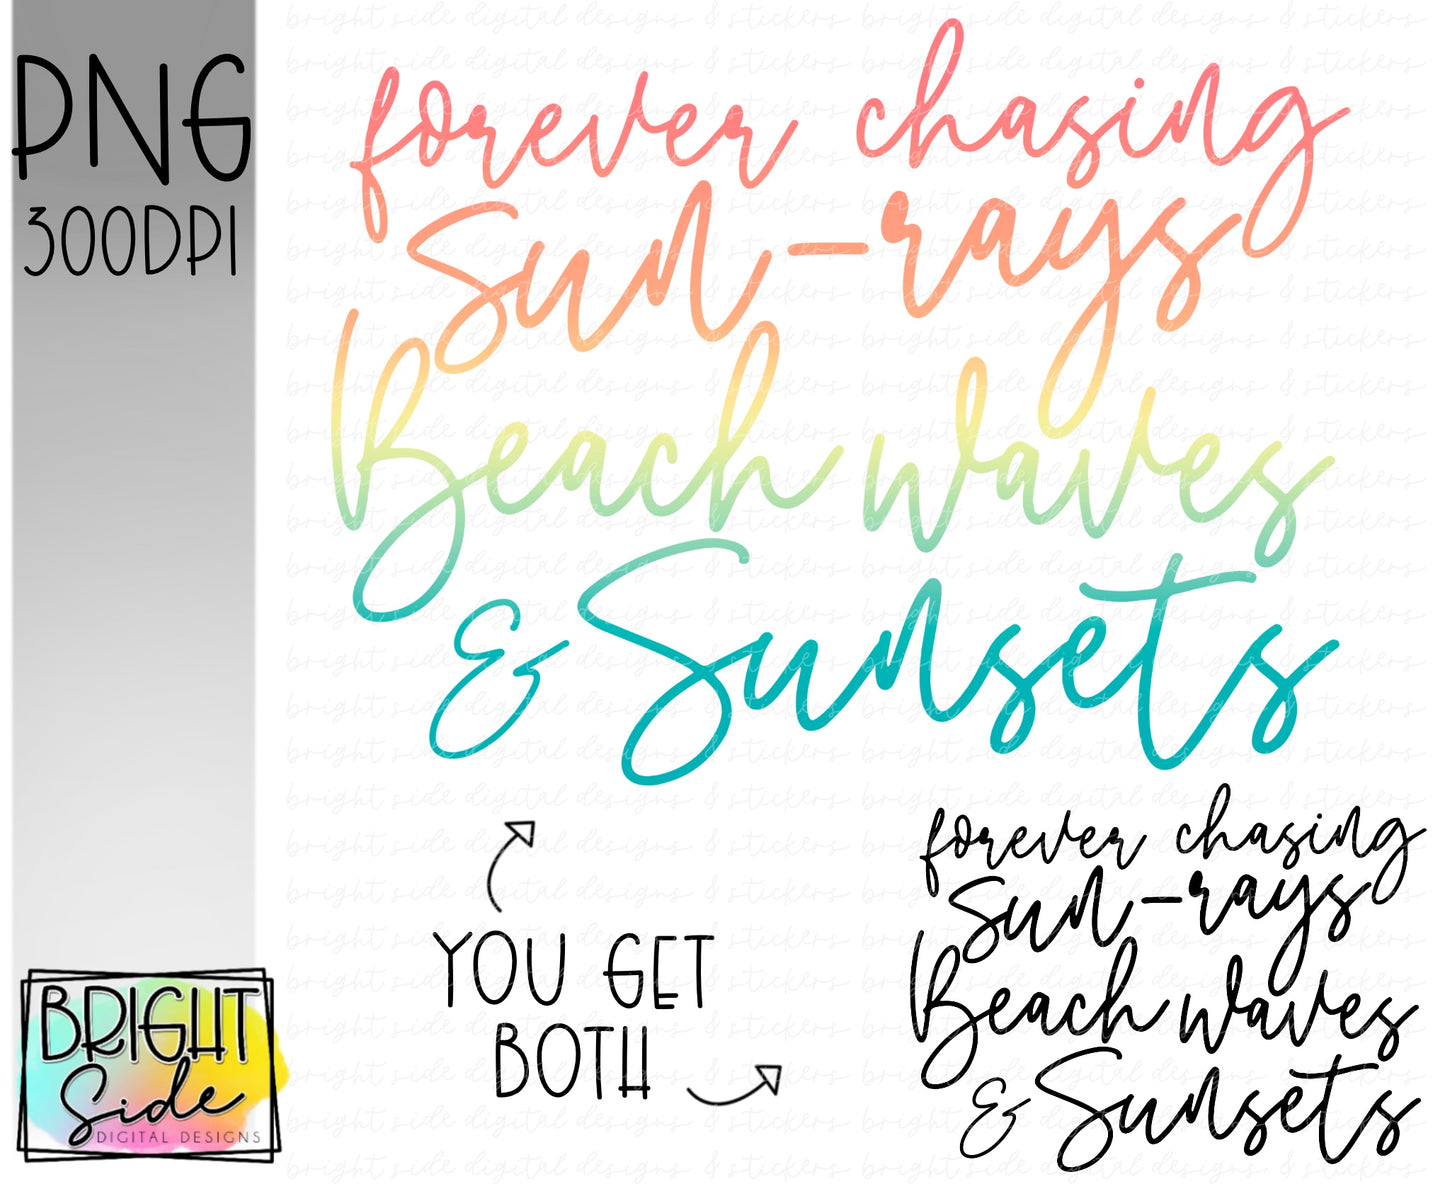 PNG
300DPI
forever chasing
Sun-rays
Beach waves
& Sunsets
YOU GET
BOTH
forever chasing
Sun-rays
Beach waves
& Sunsets
BRIGHT
Side
DIGITAL DESIGNS
bright side digital designs & stickers